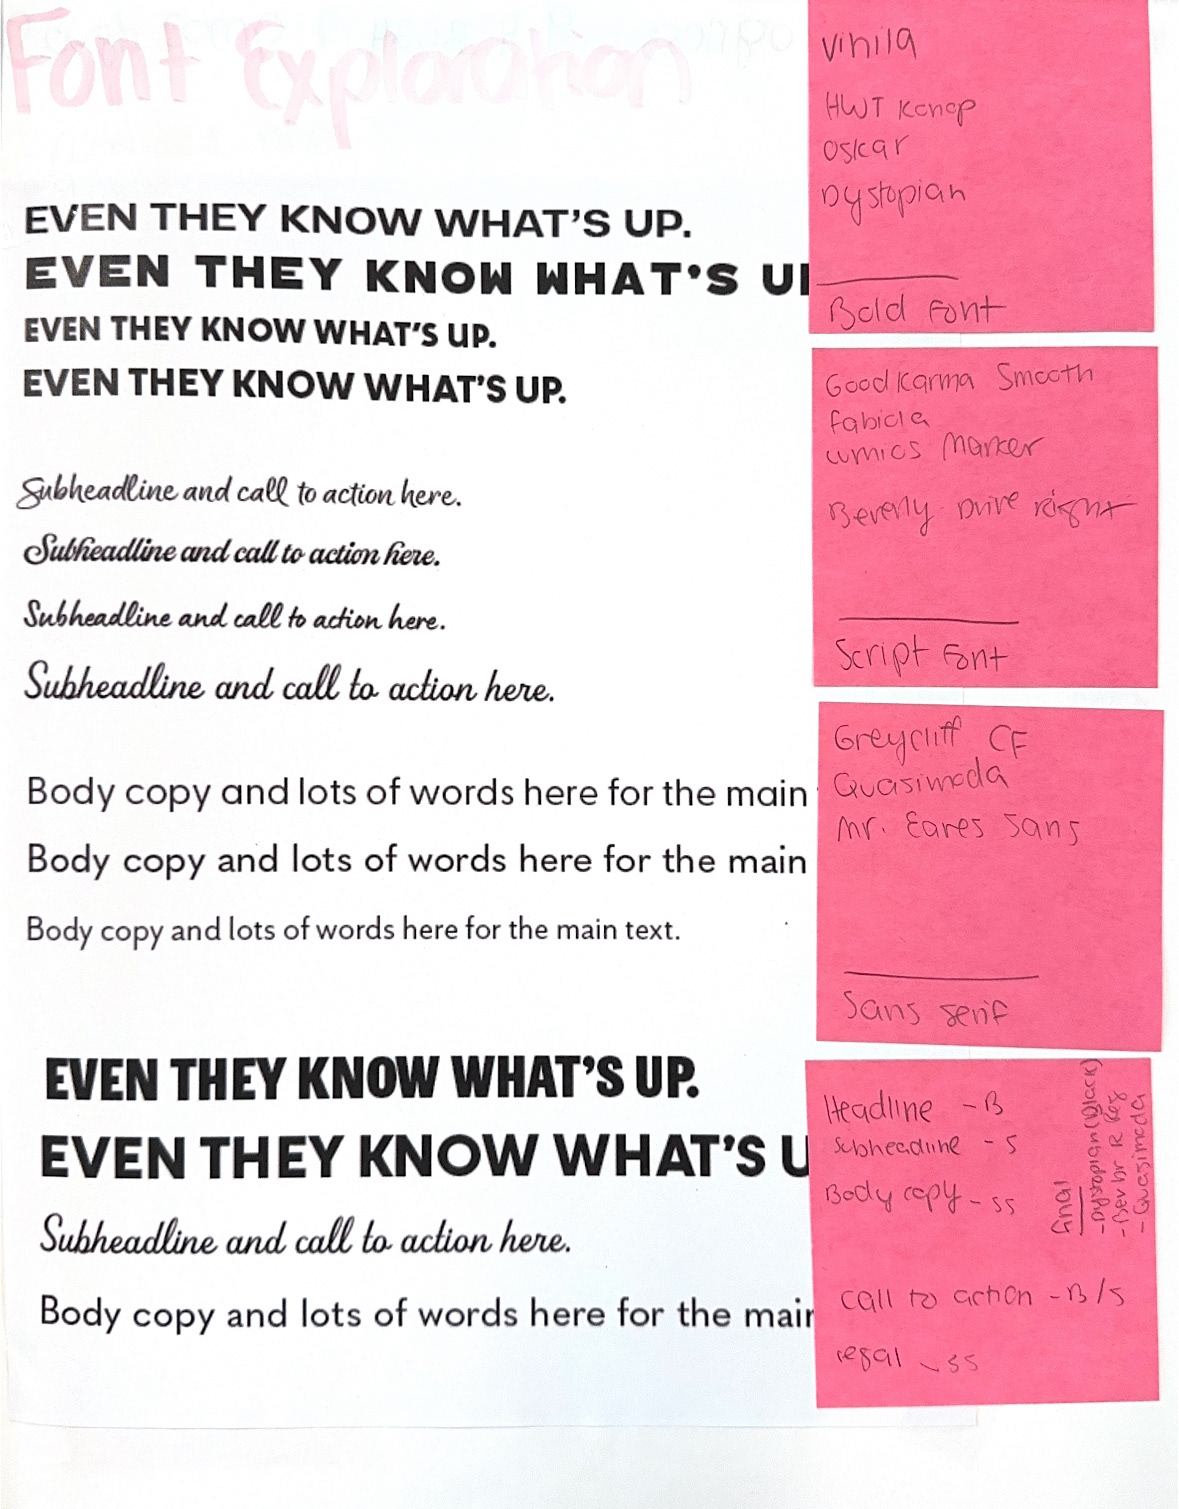 Font Exploration
EVEN THEY KNOW WHAT'S UP.
EVEN THEY KNOW WHAT'S UP
EVEN THEY KNOW WHAT'S UP.
EVEN THEY KNOW WHAT'S UP.
Subheadline and call to action here.
Subheadline and call to action here.
Subheadline and call to action here.
Subheadline and call to action here.
Body copy and lots of words here for the main
Body copy and lots of words here for the main
Body copy and lots of words here for the main text.
EVEN THEY KNOW WHAT'S UP.
EVEN THEY KNOW WHAT'S U
Subheadline and call to action here.
Body copy and lots of words here for the main
Vinila
HWT
Oskar
Dystopian
Bold Font
Good Karma Smooth
Marker
Beverly Drive Right
Script Font
Greycliff CF
Quasimoda
Mr. Eaves Sans
Sans serif
Headline - B
Subheadline - S
Body copy - SS
Call to action - B/S
- SS
final
- Dystopian (Black)
- Bev Dr R Reg
- Quasimoda